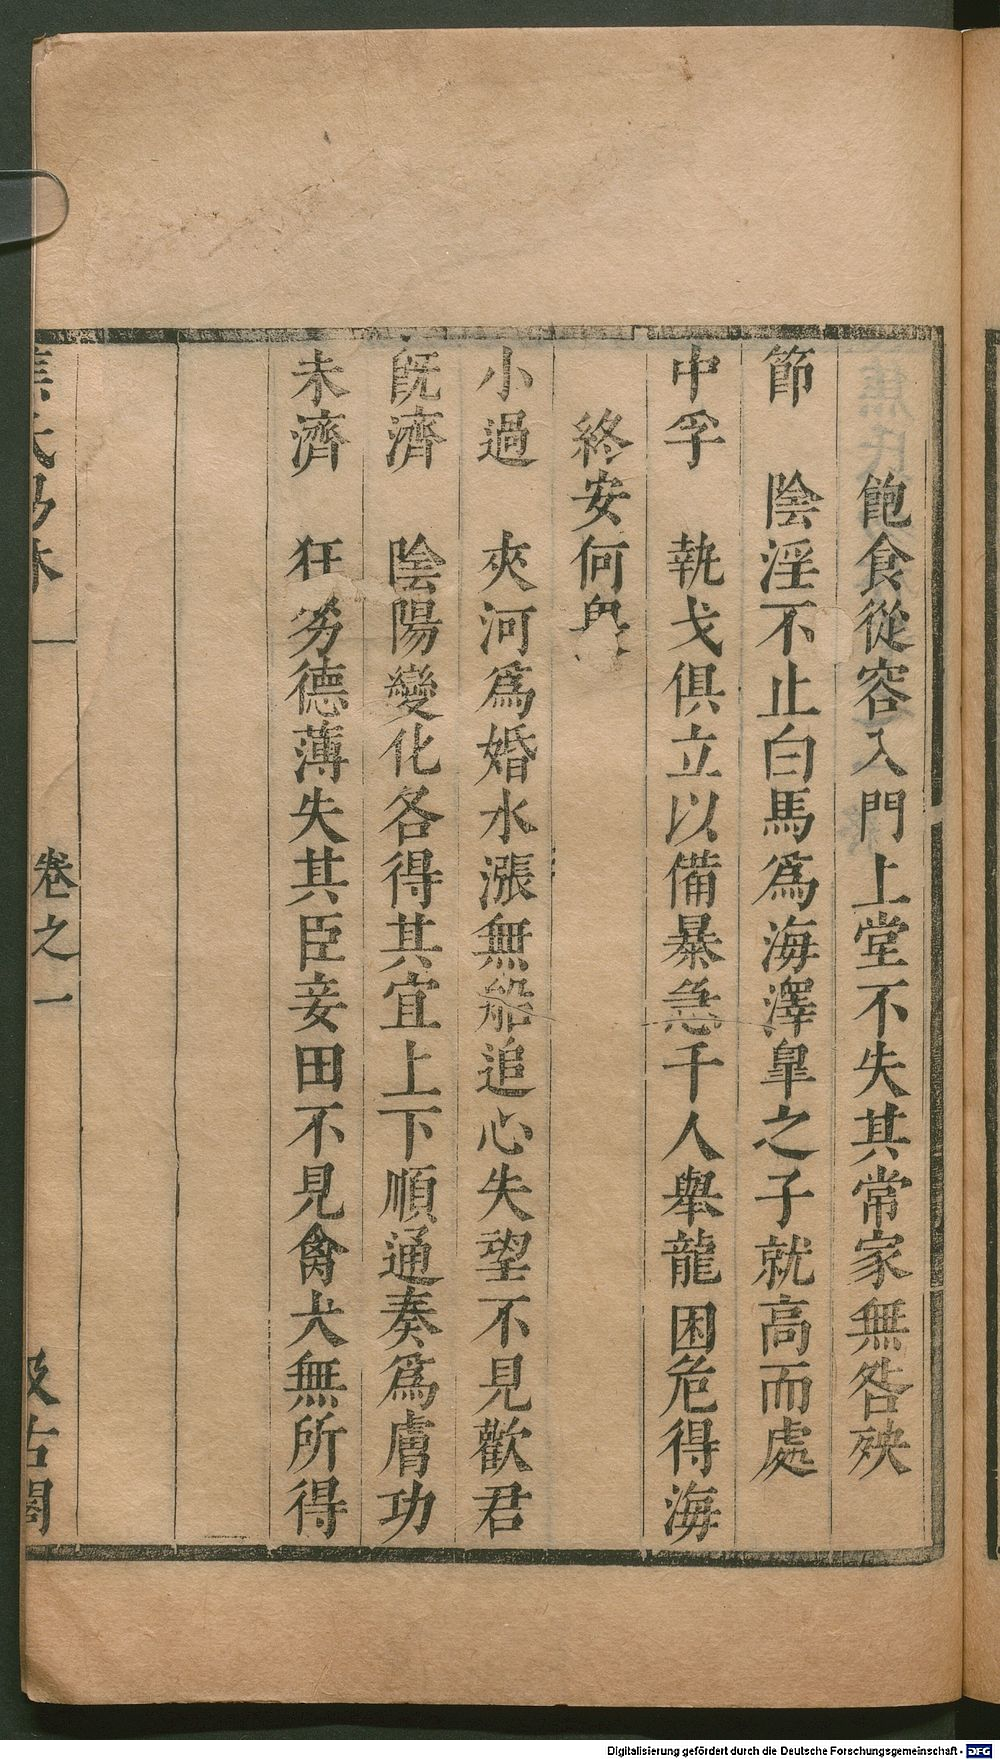 飽食從容入門上堂不失其常家無咎殃
節　陰淫不止白馬爲海澤臯之子就高而處
中孚　執戈俱立以備暴急千人舉龍困危得海
終安何
小過　夾河爲婚水漲無船追心失望不見歡君
旣濟　陰陽變化各得其宜上下順通奏爲膚功
未濟　狂䇿德薄失其臣妾田不見禽犬無所得
焦氏易林　卷之一　汲古閣
Digitalisierung gefördert durch die Deutsche Forschungsgemeinschaft - DFG